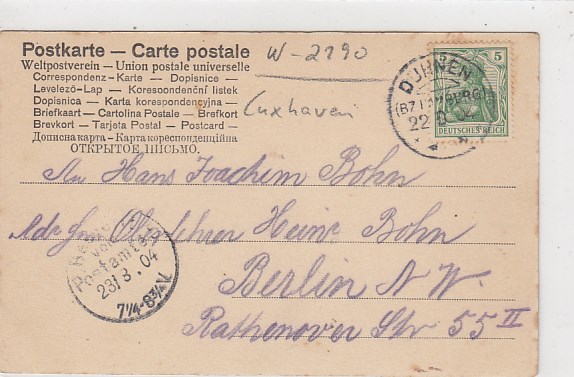 Postkarte — Carte postale
Weltpostverein — Union postale universelle
Correspondenz-Karte — Dopisnice —
Levelező-Lap — Koresoondenční listek
Dopisnica — Karta korespondencyjna —
Briefkaart — Cartolina Postale — Brefkort
Brevkort — Tarjeta Postal — Postcard —
Дописна карта — Карта кореспонденційна
ОТКРЫТОЕ ПИСЬМО.
W-2190
Cuxhaven
5
DEUTSCHES REICH
DUHNEN
22
An Hans Joachim Bohn
Adr Herrn Oberlehrer Heinr Bohn
Berlin N.W.
Rathenower Str 55 II
Postamt
23/8.04
7¼-8¾ V.